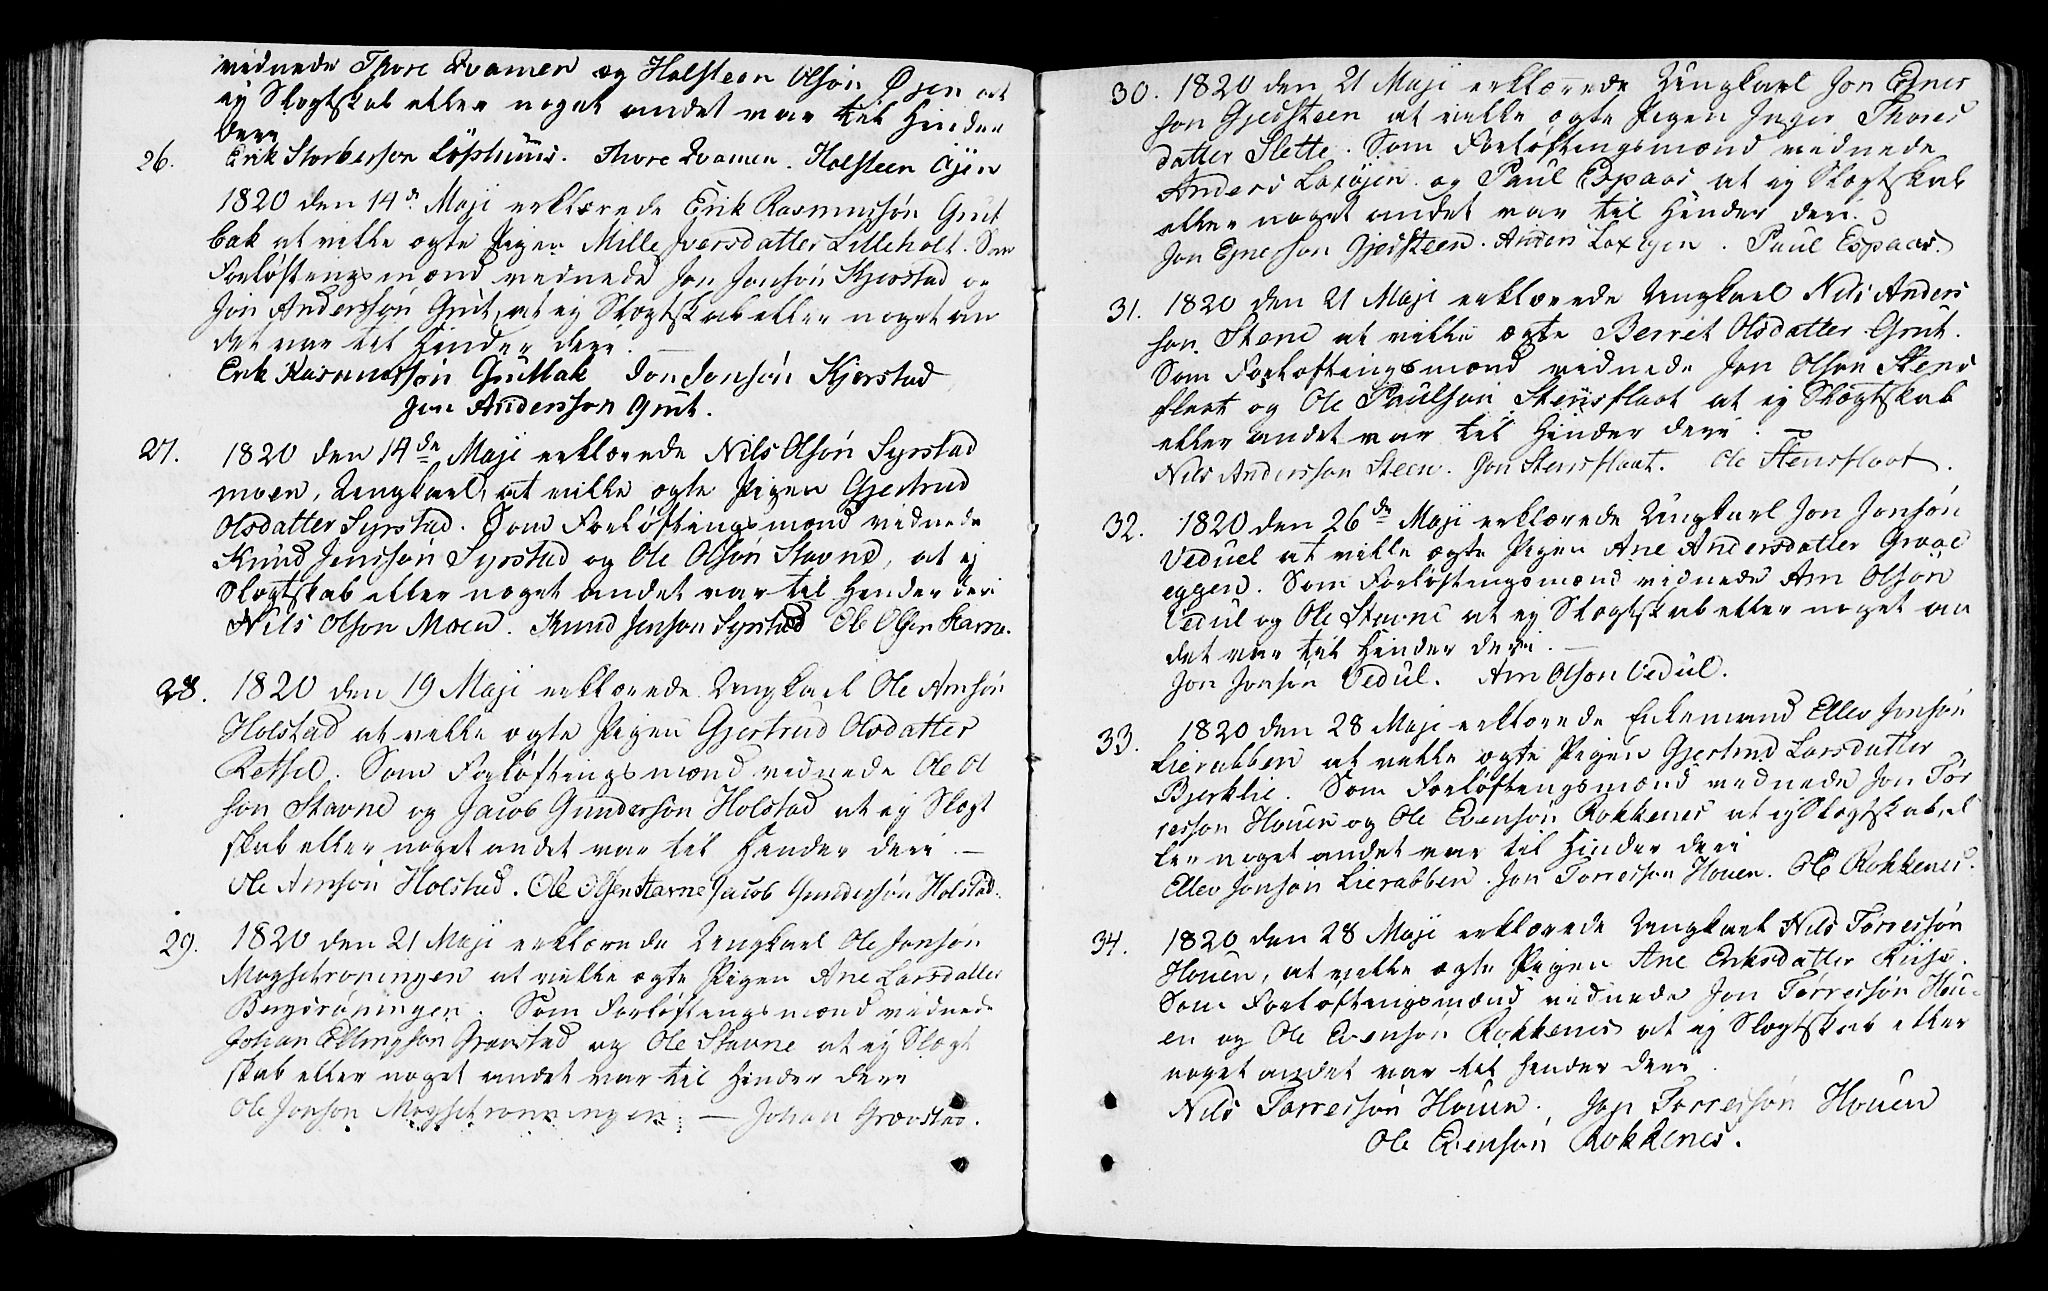 vidnede Thore Qvamen og Halsteen Olsön Øyen at
ey Slægtskab eller noget andet var til Hinder
deri
Erik Storkerson Löshuus. Thore Qvamen. Halsteen Öyen
26.
1820 den 14de Maji erklærede Erik Rasmussön Grut
bak at ville ægte Pigen Mille Iversdatter Lilleholt. Som
Forløftningsmænd vidnede Jon Jonsön Kjerstad og
Jon Anderssön Grut, at ey Slægtskab eller noget an
det var til Hinder deri.
Erik Rasmussön Grutbak Jon Jonsön Kjerstad
Jon Andersson Grut.
27. 1820 den 14de Maji erklærede Nils Olsön Syrstad
moen, Ungkarl, at ville ægte Pigen Gjertrud
Olsdatter Syrstad. Som Forløftningsmænd vidnede
Knud Jenssön Syrstad og Ole Olsön Stavne, at ej
Slægtskab eller noget andet var til Hinder deri
Nils Olson Moen. Knud Jenson Syrstad Ole Olsen Stavne.
28. 1820 den 19 Maji erklærede Ungkarl Ole Arnsön
Holstad at ville ægte Pigen Gjertrud Olsdatter
Som Forløftningsmænd vidnede Ole Ol
son Stavne og Jacob Gunderson Holstad at ey Slægt
skab eller noget andet var til Hinder deri. —
Ole Arnsön Holstad. Ole Olsen Stavne Jacob Gundersön Holstad.
29. 1820 den 21 Maji erklærede Ungkarl Ole Jonsön
Mogsetröningen at ville ægte Pigen Ane Larsdatter
Bergsröningen. Som Forløftningsmænd vidnede
Johan Ellingson Grøvstad og Ole Stavne at ey Slægt
skab eller noget andet var til Hinder deri
Ole Jonson Mogsetrönningen. — Johan Grøvstad.
30. 1820 den 21 Maji erklærede Ungkarl Jon Ejner
son Gjedsteen at ville ægte Pigen Inger Thores
datter Slette. Som Forløftningsmænd vidnede
Anders Laxöjen og Paul Espaas at ey Slægtskab
eller noget andet var til Hinder deri.
Jon Ejnerson Gjedsteen. Anders Laxöjen. Paul Espaas.
31. 1820 den 21 Maji erklærede Ungkarl Nils Anders
son Steen at ville ægte Berret Olsdatter Grut.
Som Forløftningsmænd vidnede Jon Olson Stens
flaat og Ole Paulson Stensflaat at ey Slægtskab
eller andet var til Hinder deri. —
Nils Andersson Steen. Jon Stensflaat. Ole Stensflaat.
32. 1820 den 26de Maji erklærede Ungkarl Jon Jonsön
Veduel at ville ægte Pigen Ane Andersdatter Graae
eggen. Som Forløftningsmænd vidnede Arn Olson
Vedul og Ole Stavne at ey Slægtskab eller noget an
det var til Hinder deri. —
Jon Jonsön Vedul. Arn Olson Vedul.
33. 1820 den 28 Maji erklærede Enkemand Ellev Jonsön
Lierabben at ville ægte Pigen Gjertrud Larsdatter
Bjerklie. Som Forløftningsmænd vidnede Jon Tör
resson Houen og Ole Evensön Rokkenes at ey Slægtskab el
ler noget andet var til Hinder deri
Ellev Jonsön Lierabben. Jon Torresson Houen. Ole Rokkenes.
34. 1820 den 28 Maji erklærede Ungkarl Nils Törressön
Houen, at ville ægte Pigen Ane Eriksdatter
Som Forløftningsmænd vidnede Jon Törressön Hou-
en og Ole Evensön Rokkenes at ey Slægtskab eller
noget andet var til Hinder deri.
Nils Torressön Houen. Jon Torressön Houen
Ole Evensön Rokkenes.